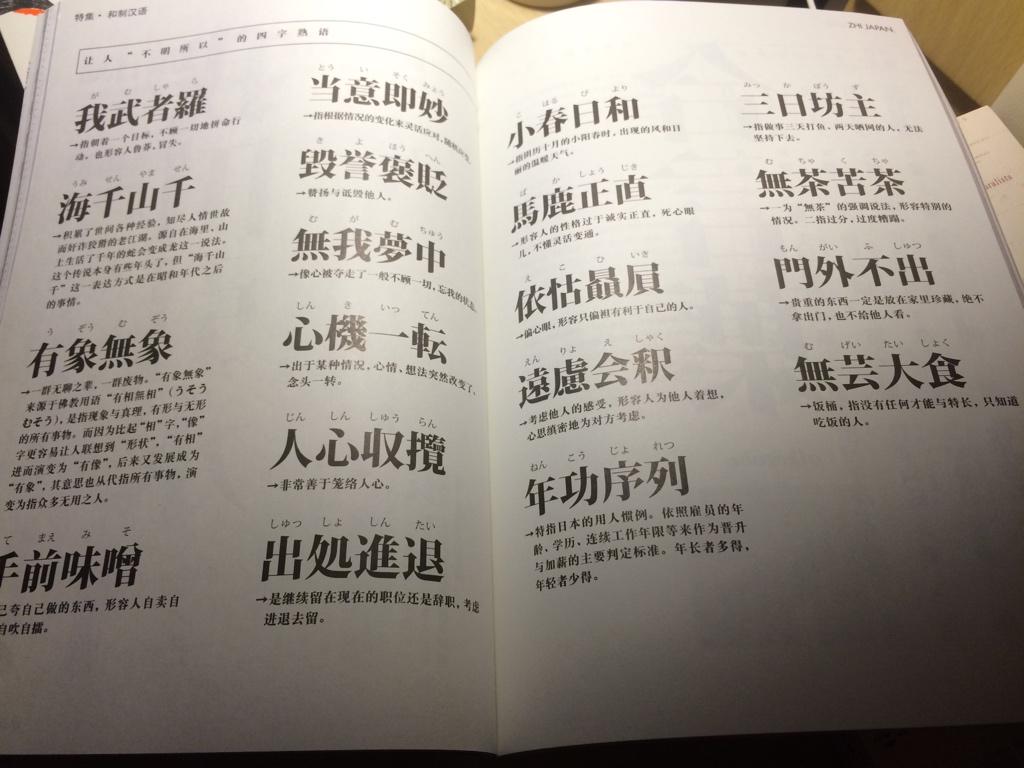 特集·和制汉语
让人“不明所以”的四字熟语
が む しゃ ら
我武者羅
→指朝着一个目标，不顾一切地拼命行
动，也形容人鲁莽，冒失。
うみ せん やま せん
海千山千
→积累了世间各种经验，知尽人情世故
而奸诈狡猾的老江湖。源自在海里、山
上生活了千年的蛇会变成龙这一说法。
这个传说本身有些年头了，但“海千山
千”这一表达方式是在昭和年代之后
的事情。
う ぞう む ぞう
有象無象
→一群无聊之辈，一群废物。“有象無象”
来源于佛教用语“有相無相”（うそう
むそう），是指现象与真理，有形与无形
的所有事物。而因为比起“相”字，“像”
字更容易让人联想到“形状”，“有相”
进而演变为“有像”，后来又发展成为
“有象”，其意思也从代指所有事物，演
变为指众多无用之人。
て まえ み そ
手前味噌
己夸自己做的东西，形容人自卖自
自吹自擂。
とう い そく みょう
当意即妙
→指根据情况的变化来灵活应对，随机应变。
き よ ほう へん
毀誉褒貶
→赞扬与诋毁他人。
む が む ちゅう
無我夢中
→像心被夺走了一般不顾一切，忘我的状态。
しん き いっ てん
心機一転
→出于某种情况，心情、想法突然改变了，
念头一转。
じん しん しゅう らん
人心収攬
→非常善于笼络人心。
しゅっ しょ しん たい
出処進退
→是继续留在现在的职位还是辞职，考虑
进退去留。
ZHI JAPAN
こ はる び より
小春日和
→指阴历十月的小阳春时，出现的风和日
丽的温暖天气。
ば か しょう じき
馬鹿正直
→形容人的性格过于诚实正直，死心眼
儿，不懂灵活变通。
え こ ひ いき
依怙贔屓
→偏心眼，形容只偏袒有利于自己的人。
えん りょ え しゃく
遠慮会釈
→考虑他人的感受，形容为他人着想，
心思缜密地为对方考虑。
ねん こう じょ れつ
年功序列
→特指日本的用人惯例。依照雇员的年
龄、学历、连续工作年限等来作为晋升
与加薪的主要判定标准。年长者多得，
年轻者少得。
みっ か ぼう ず
三日坊主
→指做事三天打鱼，两天晒网的人，无法
坚持下去。
む ちゃ く ちゃ
無茶苦茶
→一为“無茶”的强调说法，形容特别的
情况。二指过分，过度糟蹋。
もん がい ふ しゅつ
門外不出
→贵重的东西一定是放在家里珍藏，绝不
拿出门，也不给他人看。
む げい たい しょく
無芸大食
→饭桶，指没有任何才能与特长，只知道
吃饭的人。